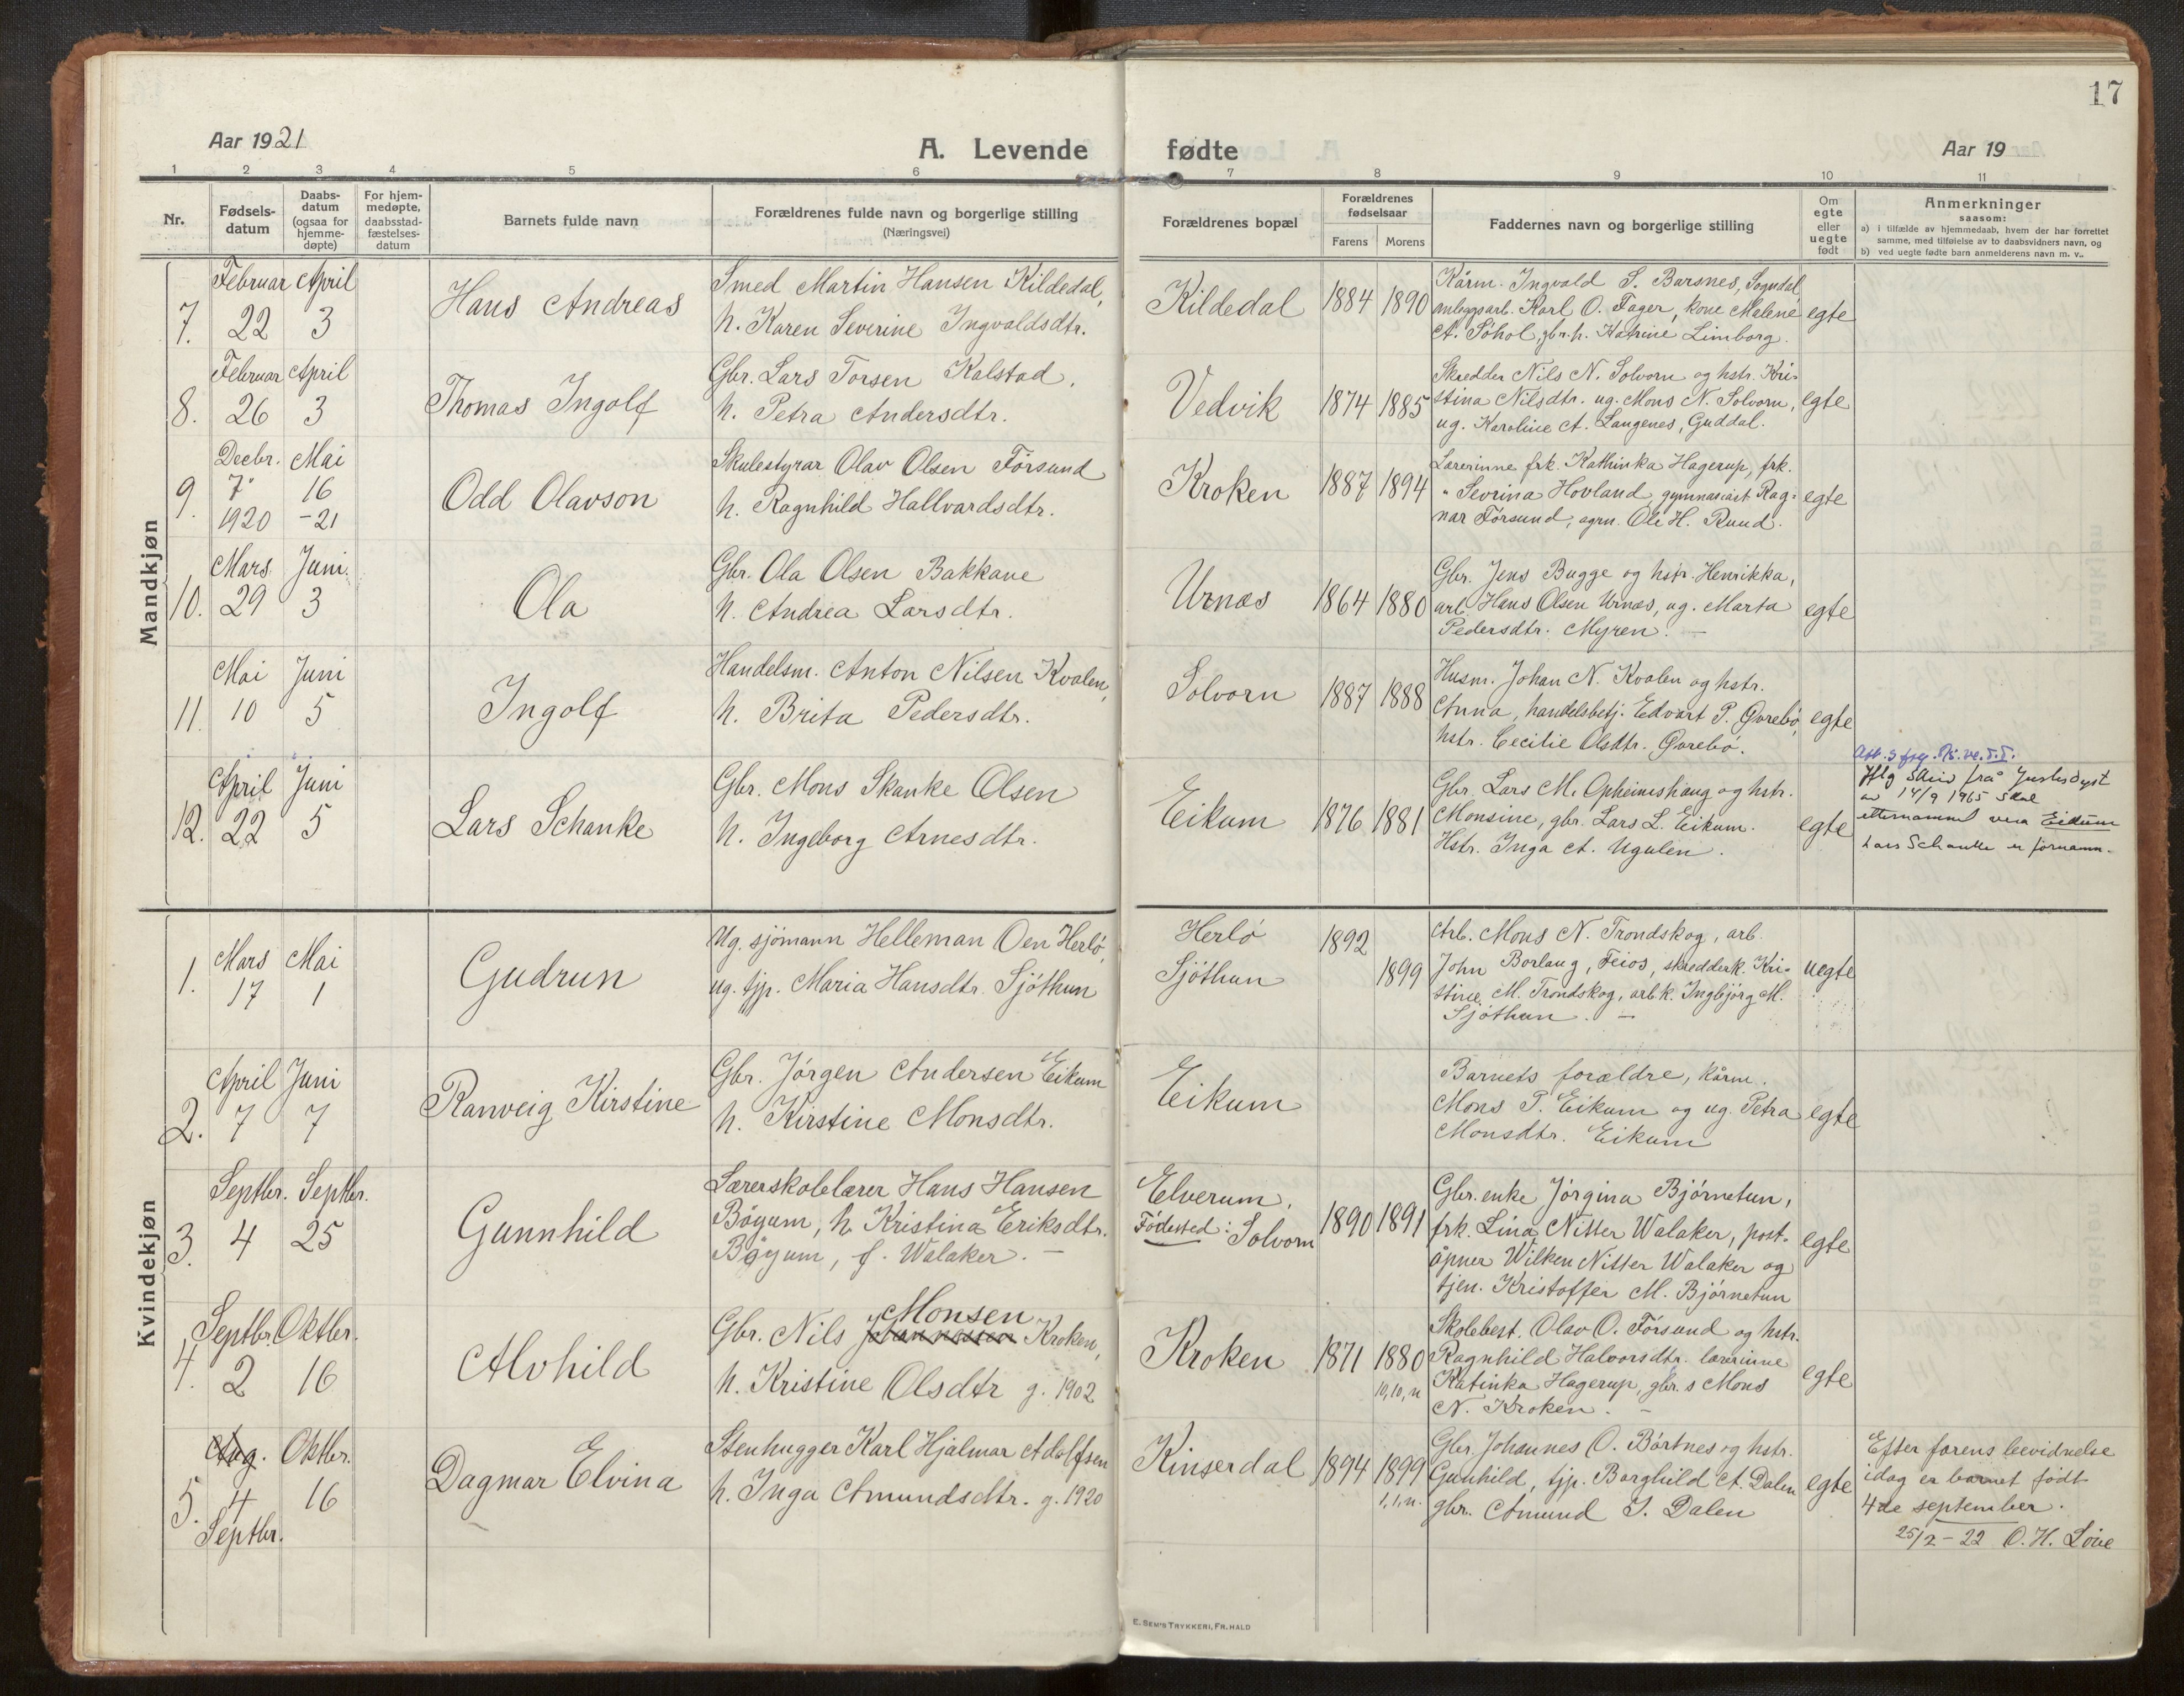 17
Aar 1921
A. Levende fødte
Aar 19
1 2 3 4 5 6 7 8 9 10 11
Nr.
Fødsels-
datum
Daabs-
datum
(ogsaa for
hjemme-
døpte)
For hjem-
medøpte,
daabsstad-
fæstelses-
datum
Barnets fulde navn
Forældrenes fulde navn og borgerlige stilling
(Næringsvei)
Forældrenes bopæl
Forældrenes
fødselsaar
Farens Morens
Faddernes navn og borgerlige stilling
Om
egte
eller
uegte
født
Anmerkninger
saasom:
a) i tilfælde av hjemmedaab, hvem der har forrettet
samme, med tilføielse av to daabsvidners navn, og
b) ved uegte fødte barn anmelderens navn m. v..
Mandkjøn
7.
Februar April
22 3
Hans Andreas
Smed Martin Hansen Kildedal,
h. Karen Severine Ingvaldsdtr.
Kildedal
1884 1890
Kårm. Ingvald S. Barsnes, Sogndal,
anleggsarb. Karl O. Fager, kone Malene
A. Söhol, gbr.h. Katrine Limborg.
egte
8.
Februar April
26 3
Thomas Ingolf
Gbr. Lars Torsen Kalstad,
h. Petra Andersdtr.
Vedvik
1874 1885
Skredder Nils N. Solvorn og hstr. Kri-
stina Nilsdtr. ug. Mons N. Solvorn,
ug. Karoline A. Langenes, Guddal.
egte
9.
Decbr. Mai
7 16
1920 -21
Odd Olavson
Skulestyrar Olav Olsen Försund
h. Ragnhild Hallvardsdtr.
Kroken
1887 1894
Lærerinne frk. Kathinka Hagerup, frk.
" Sevrina Hovland, gymnasiast Rag-
nar Försund, agrn. Ole H. Ruud.
egte
10.
Mars Juni
29 3
Ola
Gbr. Ola Olsen Bakkane
h. Andrea Larsdtr.
Urnæs
1864 1880
Gbr. Jens Bugge og hstr. Henrikka,
arb. Hans Olsen Urnæs, ug. Marta
Pedersdtr. Myren. —
egte
11.
Mai Juni
10 5
Ingolf
Handelsm. Anton Nilsen Kvalen,
h. Brita Pedersdtr.
Solvorn
1887 1888
Husm. Johan N. Kvalen og hstr.
Anna, handelsbetj. Edvart P. Qvrebö,
hstr. Cecilie Olsdtr. Qvrebö.
egte
12.
April Juni
22 5
Lars Schanke
Gbr. Mons Skanke Olsen
h. Ingeborg Arnesdtr.
Eikum
1876 1881
Gbr. Lars M. Opheimshaug og hstr.
Monsine, gbr. Lars L. Eikum.
Hstr. Inga A. Ugulen.
egte
Iflg skriv frå Justisdept
av 14/9 1965 skal
etternamnet vera Eikum
Lars Schanke er fornamn.
Kvindekjøn
1.
Mars Mai
17 1
Gudrun
Ug. sjömann Helleman Oen Herlö,
ug. tjp. Maria Hansdtr. Sjöthun
Herlö
Sjöthun
1892
1899
Arb. Mons N. Trondskog, arb.
John Borlaug, Feios, skredderk. Kri-
stine M. Trondskog, arb.k. Ingbjörg M.
Sjöthun. —
uegte
2.
April Juni
7 7
Ranveig Kirstine
Gbr. Jörgen Andersen Eikum
h. Kirstine Monsdtr.
Eikum
Barnets forældre, kårm.
Mons P. Eikum og ug. Petra
Monsdtr. Eikum
egte
3.
Septbr. Septbr.
4 25
Gunnhild
Lærerskolelærer Hans Hansen
Böyum, h. Kristina Eriksdtr.
Böyum, f. Walaker. —
Elverum,
Födested: Solvorn
1890 1891
Gbr.enke Jörgina Björnetun,
frk. Lina Nitter Walaker, post-
åpner Wilken Nitter Walaker og
tjen. Kristoffer M. Björnetun
egte
4.
Septbr. Oktbr.
2 16
Alvhild
Monsen
Gbr. Nils Johannesen Kroken,
h. Kristine Olsdtr g. 1902
Kroken
1871 1880
Skolebest. Olav O. Försund og hstr.
Ragnhild Halvorsdtr. lærerinne
Katinka Hagerup, gbr.s Mons
N. Kroken. —
egte
5.
Aug. Oktbr.
4 16
Septbr.
Dagmar Elvina
Stenhugger Karl Hjalmar Adolfsen
h. Inga Amundsdtr. g. 1920
Kinserdal
1894 1899
Gbr. Johannes O. Börtnes og hstr.
Gunhild, tjp. Borghild A. Dalen
gbr. Amund I. Dalen
egte
Efter farens bevidnelse
idag er barnet födt
4de september.
25/2 - 22 O. H. Löie
E. Sem's Trykkeri, Fr.hald